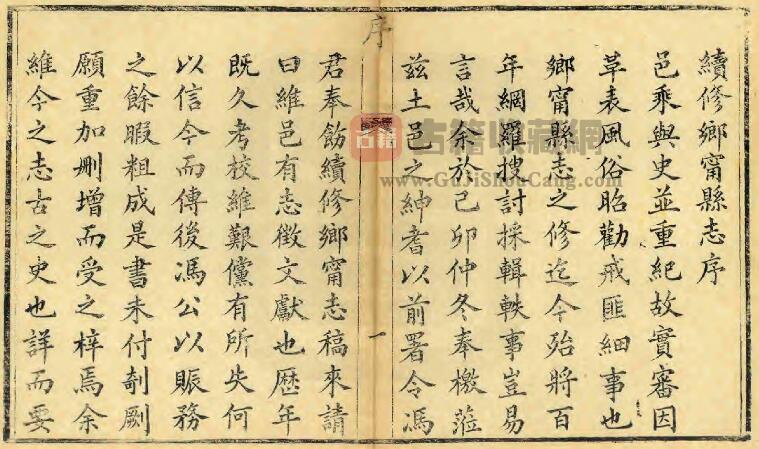 續修鄉甯縣志序
邑乘與史並重紀故實審因
革表風俗昭勸戒匪細事也
鄉甯縣志之修迄今殆將百
年網羅搜討採輯軼事豈易
言哉余於己卯仲冬奉檄蒞
茲土邑之紳耆以前署令馮
序
一
君奉飭續修鄉甯志稿來請
曰維邑有志徵文獻也歷年
既久考校維艱儻有所失何
以信今而傳後馮公以賑務
之餘暇粗成是書未付剞劂
願重加刪增而受之梓焉余
維今之志古之史也詳而要
古籍
古籍收藏網
www.GuJiShouCang.com